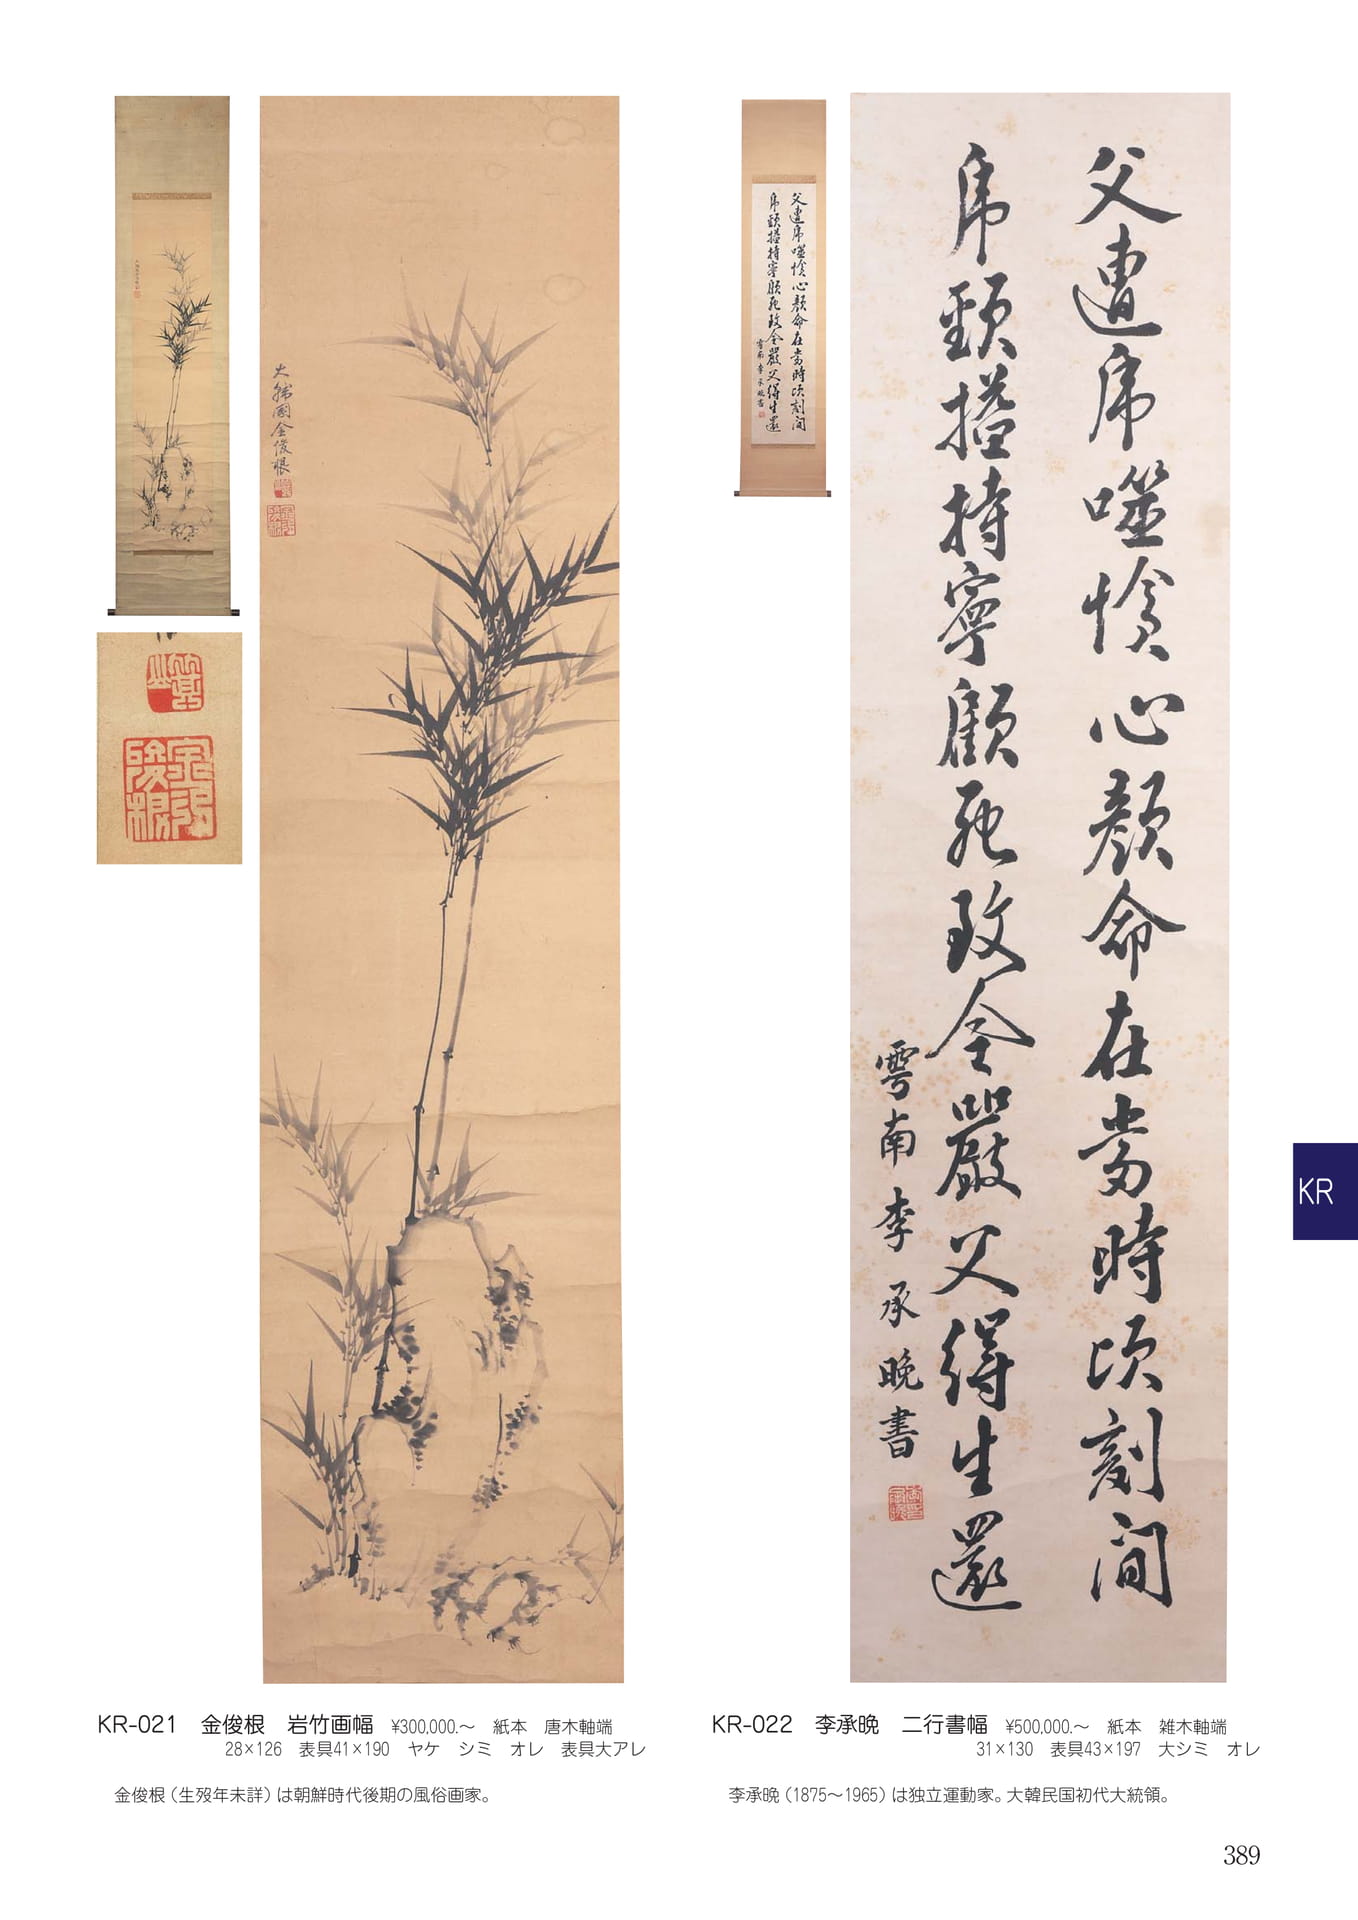 大韓國金俊根
箕山
父遭虎噬愴心顏命在當時頃刻間
虎頸搤持寧顧死致令嚴父得生還
雩南李承晚書
KR
KR-021　金俊根　岩竹画幅　¥300,000.～　紙本　唐木軸端
28×126　表具41×190　ヤケ　シミ　オレ　表具大アレ
金俊根（生歿年未詳）は朝鮮時代後期の風俗画家。
KR-022　李承晩　二行書幅　¥500,000.～　紙本　雑木軸端
31×130　表具43×197　大シミ　オレ
李承晩（1875～1965）は独立運動家。大韓民国初代大統領。
389